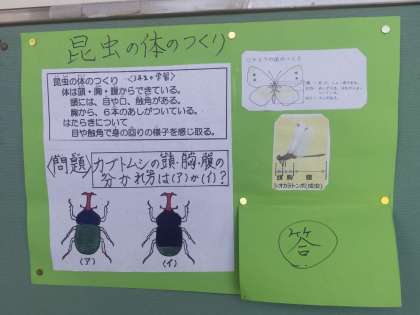 昆虫の体のつくり
昆虫の体のつくり〈これまでの学習〉
体は頭・胸・腹からできている。
頭には、目や口、触角がある。
胸から、6本のあしがついている。
はたらきについて
目や触角で身の回りの様子を感じ取る。
〈問題〉カブトムシの頭・胸・腹の
分かれ方は(ア)か(イ)?
(ア)
(イ)
頭 胸 腹
シオカラトンボ(成虫)
答